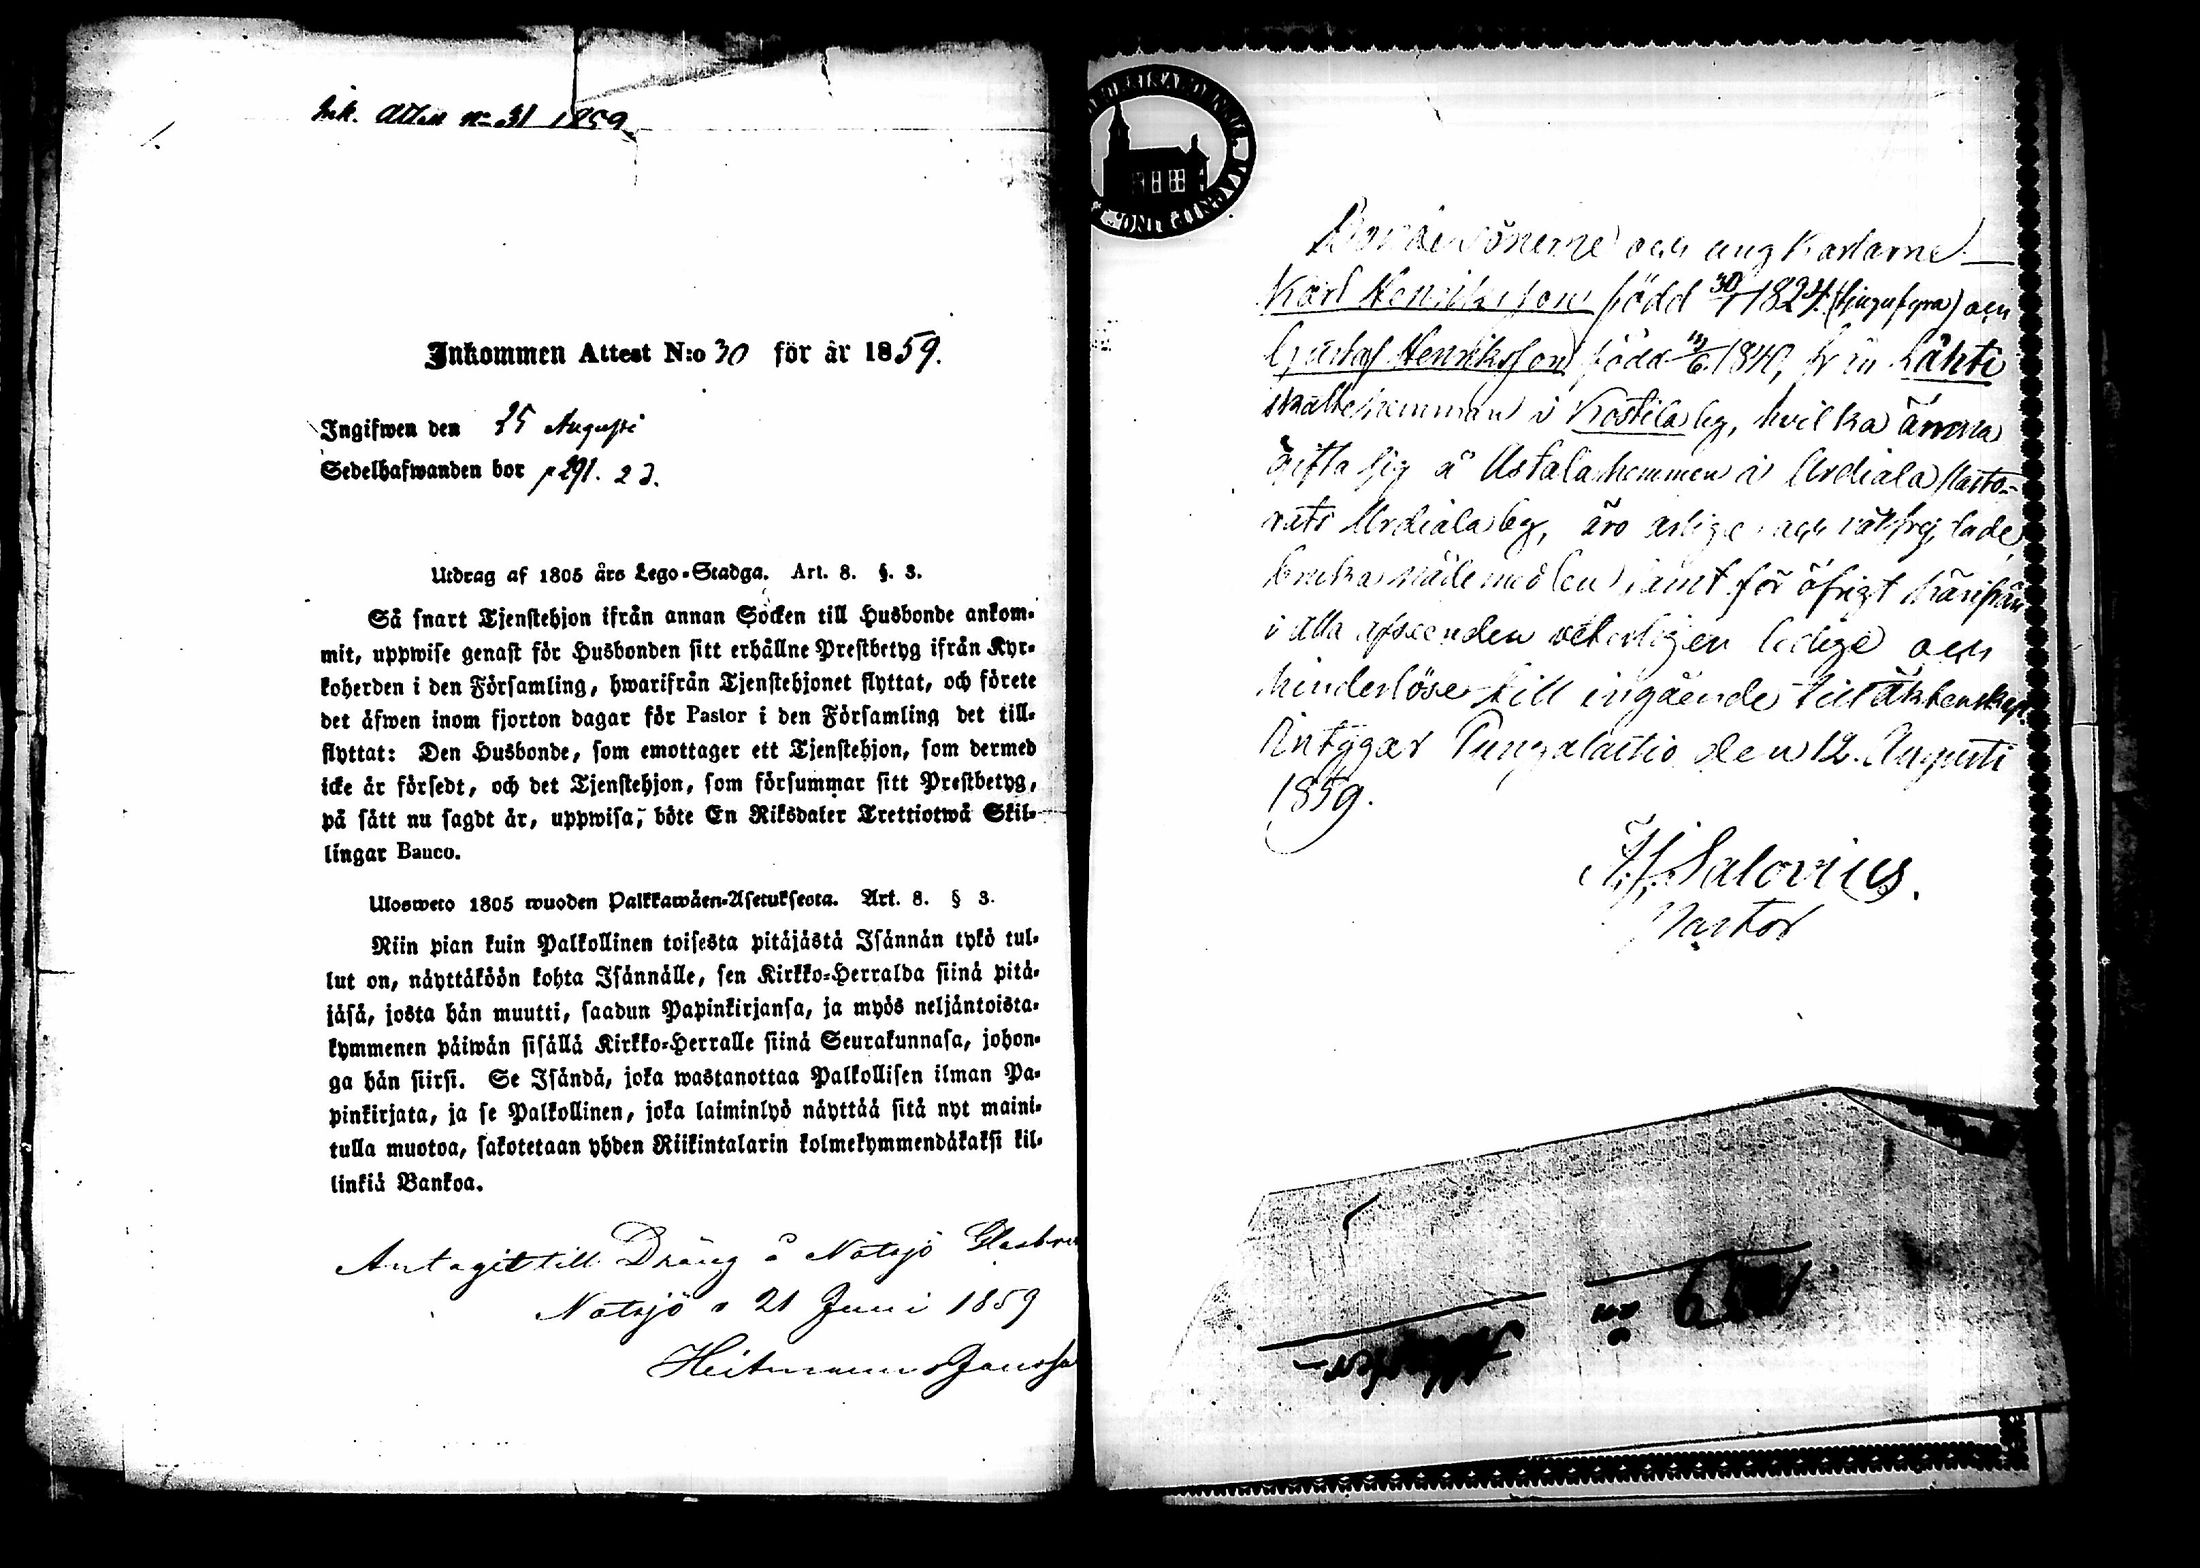 Ink. Attest No 31 1859.
Inkommen Attest N:o 30 för år 1859.
Ingifwen den 25 Augusti
Sedelhafwanden bor p 291. 23.
Utdrag af 1805 års Lego-Stadga. Art. 8. §. 3.
Så snart Tjenstehjon ifrån annan Socken till Husbonde ankom-
mit, uppwise genast för Husbonden sitt erhållne Prestbetyg ifrån Kyr-
koherden i den Församling, hwarifrån Tjenstehjonet flyttat, och förete
det äfwen inom fjorton dagar för Pastor i den Församling det till-
flyttat: Den Husbonde, som emottager ett Tjenstehjon, som dermed
icke är försedt, och det Tjenstehjon, som försummar sitt Prestbetyg,
på sätt nu sagdt är, uppwisa, böte En Riksdaler Trettiotwå Skil-
lingar Banco.
Ulosweto 1805 wuoden Palkkawäen-Asetuksesta. Art. 8. § 3.
Niin pian kuin Palkollinen toisesta pitäjästä Isännän tykö tul-
lut on, näyttäköön kohta Isännälle, sen Kirkko-Herralda siinä pitä-
jäsä, josta hän muutti, saadun Papinkirjansa, ja myös neljäntoista-
kymmenen päiwän sisällä Kirkko-Herralle siinä Seurakunnasa, johon-
ga hän siirsi. Se Isändä, joka wastanottaa Palkollisen ilman Pa-
pinkirjata, ja se Palkollinen, joka laiminlyö näyttää sitä nyt maini-
tulla muotoa, sakotetaan yhden Riikintalarin kolmekymmendäkaksi kil-
linkiä Bankoa.
Antagit till Dräng å Notsjö Glasbru
Notsjö d 21 Juni 1859
Heitmann
Bondesönerne och ung Karlarne
Karl Henriksson född 30/1 1824 (tjugufyra) och
Gustaf Henriksson född 1840, från Lähti
skattehemman i Kostila by, hvilka ämna
gifta sig å Astala hemman i Urdiala Pasto-
rats Urdiala by, äro ärlige och välfrejdade,
bruka nådemedlen samt för öfrigt härifrån
i alla afseenden veterligen ledige och
hinderlöse till ingående till äktenskap.
Intygar Pungalaitio den 12. Augusti
1859.
Salovius.
Pastor
1859